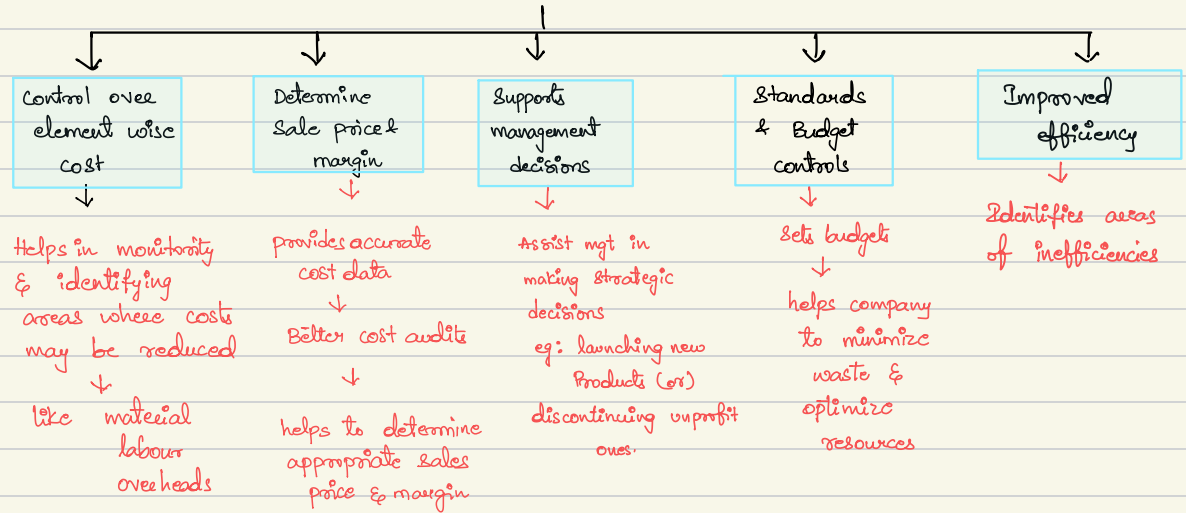 Control over
element wise
cost
Helps in monitority
& identifying
areas where costs
may be reduced
like material
labour
overheads
Determine
Sale price &
margin
provides accurate
cost data
Better cost audits
helps to determine
appropriate sales
price & margin
Supports
management
decisions
Assist mgt in
making strategic
decisions
eg: launching new
Products (or)
discontinuing unprofit
ones.
Standards
& Budget
controls
Sets budgets
helps company
to minimize
waste &
optimize
resources
Improved
efficiency
Identifies areas
of inefficiencies